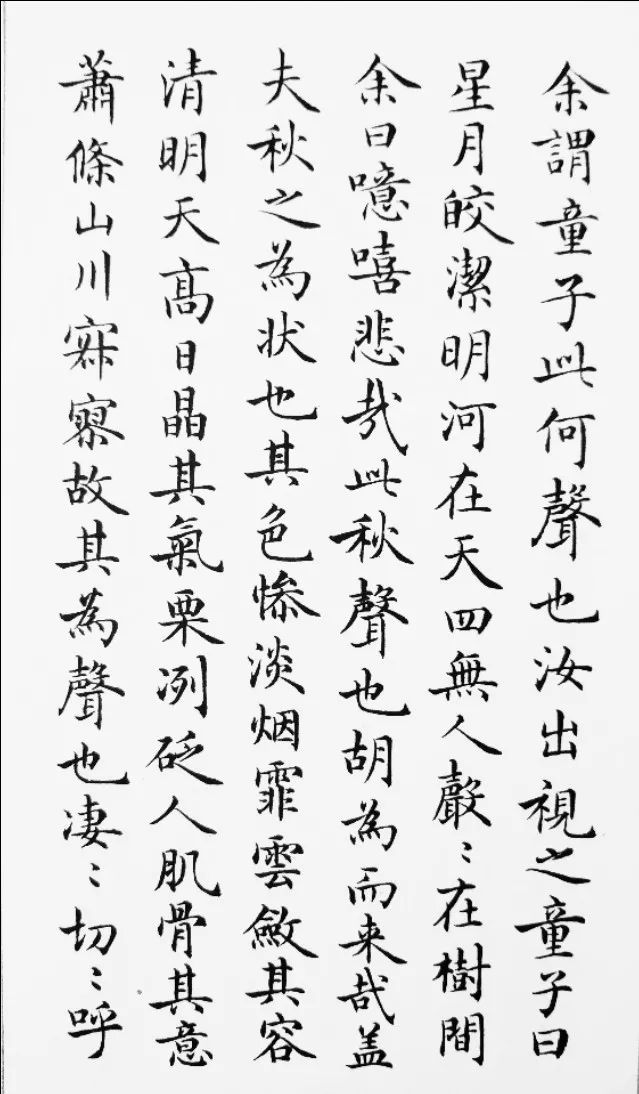 余謂童子此何聲也汝出視之童子曰
星月皎潔明河在天四無人聲〻在樹間
余曰噫嘻悲哉此秋聲也胡為而来哉盖
夫秋之為状也其色惨淡烟霏雲斂其容
清明天髙日晶其氣栗冽砭人肌骨其意
蕭條山川寂寥故其為聲也凄〻切〻呼